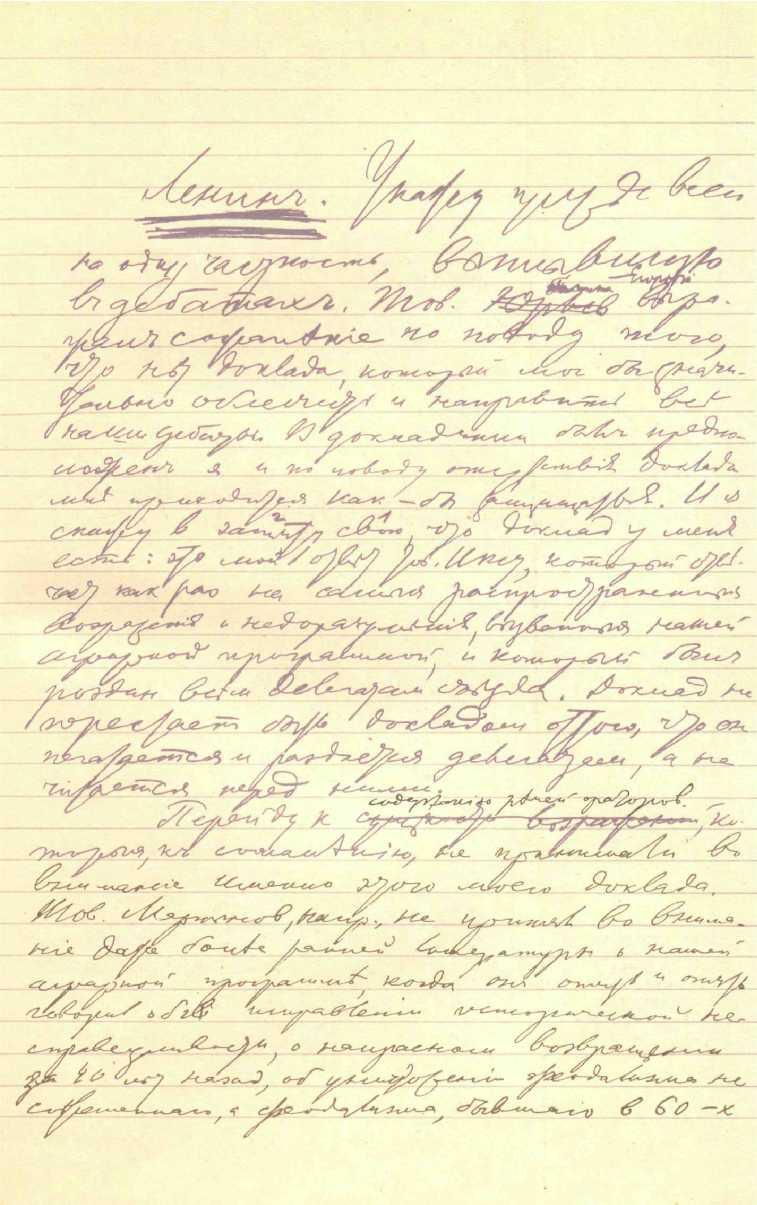 Ленинъ. Укажу прежде всего
на одну частность, всплывшую
въ дебатахъ. Тов. Егоровъ выра-
жалъ сожалѣніе по поводу того,
что нѣт доклада, который мог бы значи-
тельно облегчить и направить всѣ
наши дебаты. В докладчики былъ предпо-
ложенъ я и по поводу отсутствія доклада
мнѣ приходится как-бы защищаться. И я
скажу в защиту свою, что доклад у меня
есть: это мой отвѣт тов. Иксу, который отвѣ-
чает как раз на самыя распространенныя
возраженія и недоразумѣнія, вызванныя нашей
аграрной программой, и который был
роздан всѣм делегатам съѣзда. Доклад не
перестает быть докладом оттого, что он
печатается и раздается делегатам, а не
читается перед ними.
Перейду к содержанію рѣчей ораторов, ко-
торые, къ сожалѣнію, не принимали во
вниманіе именно этого моего доклада.
Тов. Мартынов, напр., не принял во внима-
ніе даже болѣе ранней литературы о нашей
аграрной программѣ, когда он опять и опять
говорил об исправленіи исторической не-
справедливости, о напрасном возвращеніи
за 40 лѣт назад, об уничтоженіи феодализма не
современнаго, а феодализма, бывшаго в 60-х